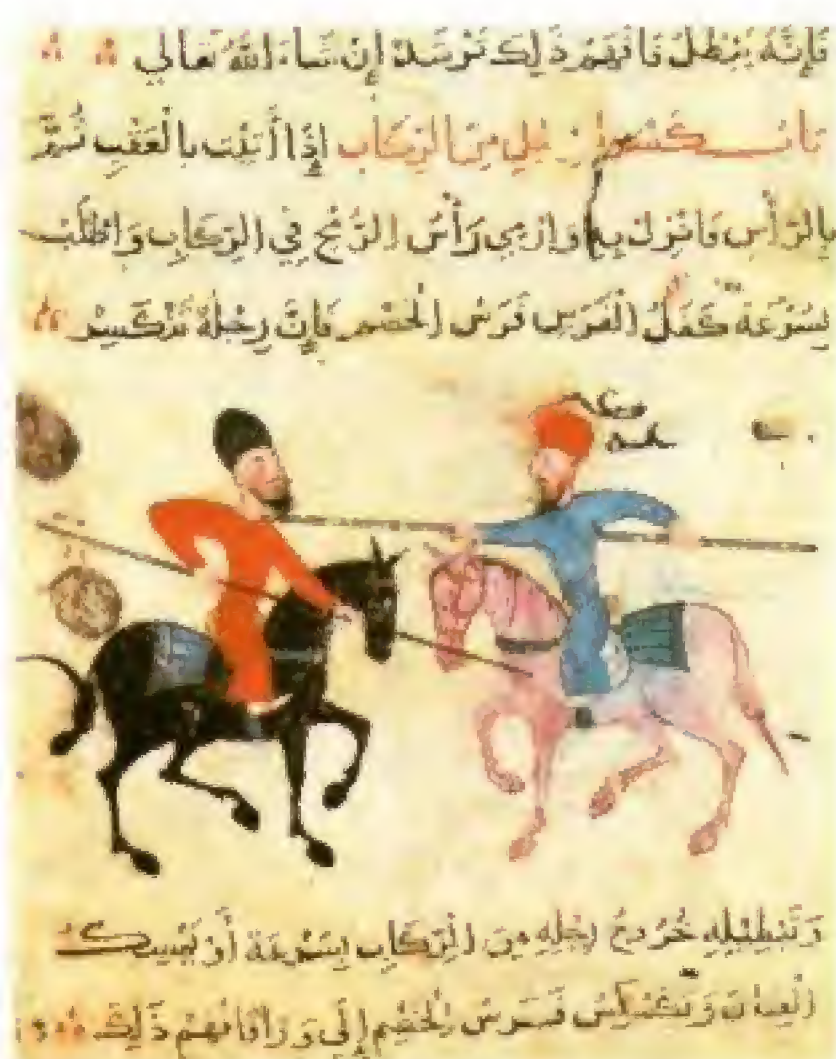 فَإِنَّهُ يَبْطُلُ فَافْهَمْ ذَلِكَ تَرْشَدْ إِنْ شَاءَ اللَّهُ تَعَالَى
بَابُ كَسْرِ رِجْلِي مِنَ الرِّكَابِ إِذَا أَتَيْتَ بِالْعَقْبِ ثُمَّ
بِالرَّأْسِ فَانْزِلْ بِهِ وَارْمِي رَأْسَ الرُّمْحِ فِي الرِّكَابِ وَاطْلُبْ
بِسُرْعَةٍ كَفَلَ الْفَرَسِ فَرَسَ الْخَصْمِ فَإِنَّ رِجْلَهُ تَنْكَسِرُ
وَتَبْطِيلِهِ خُرُوجُ رِجْلِهِ مِنَ الرِّكَابِ بِسُرْعَةٍ أَوْ يَمْسِكُ
الْعِنَانَ وَيَنْعَكِسُ فَرَسُ الْخَصْمِ إِلَى وَرَا فَافْهَمْ ذَلِكَ